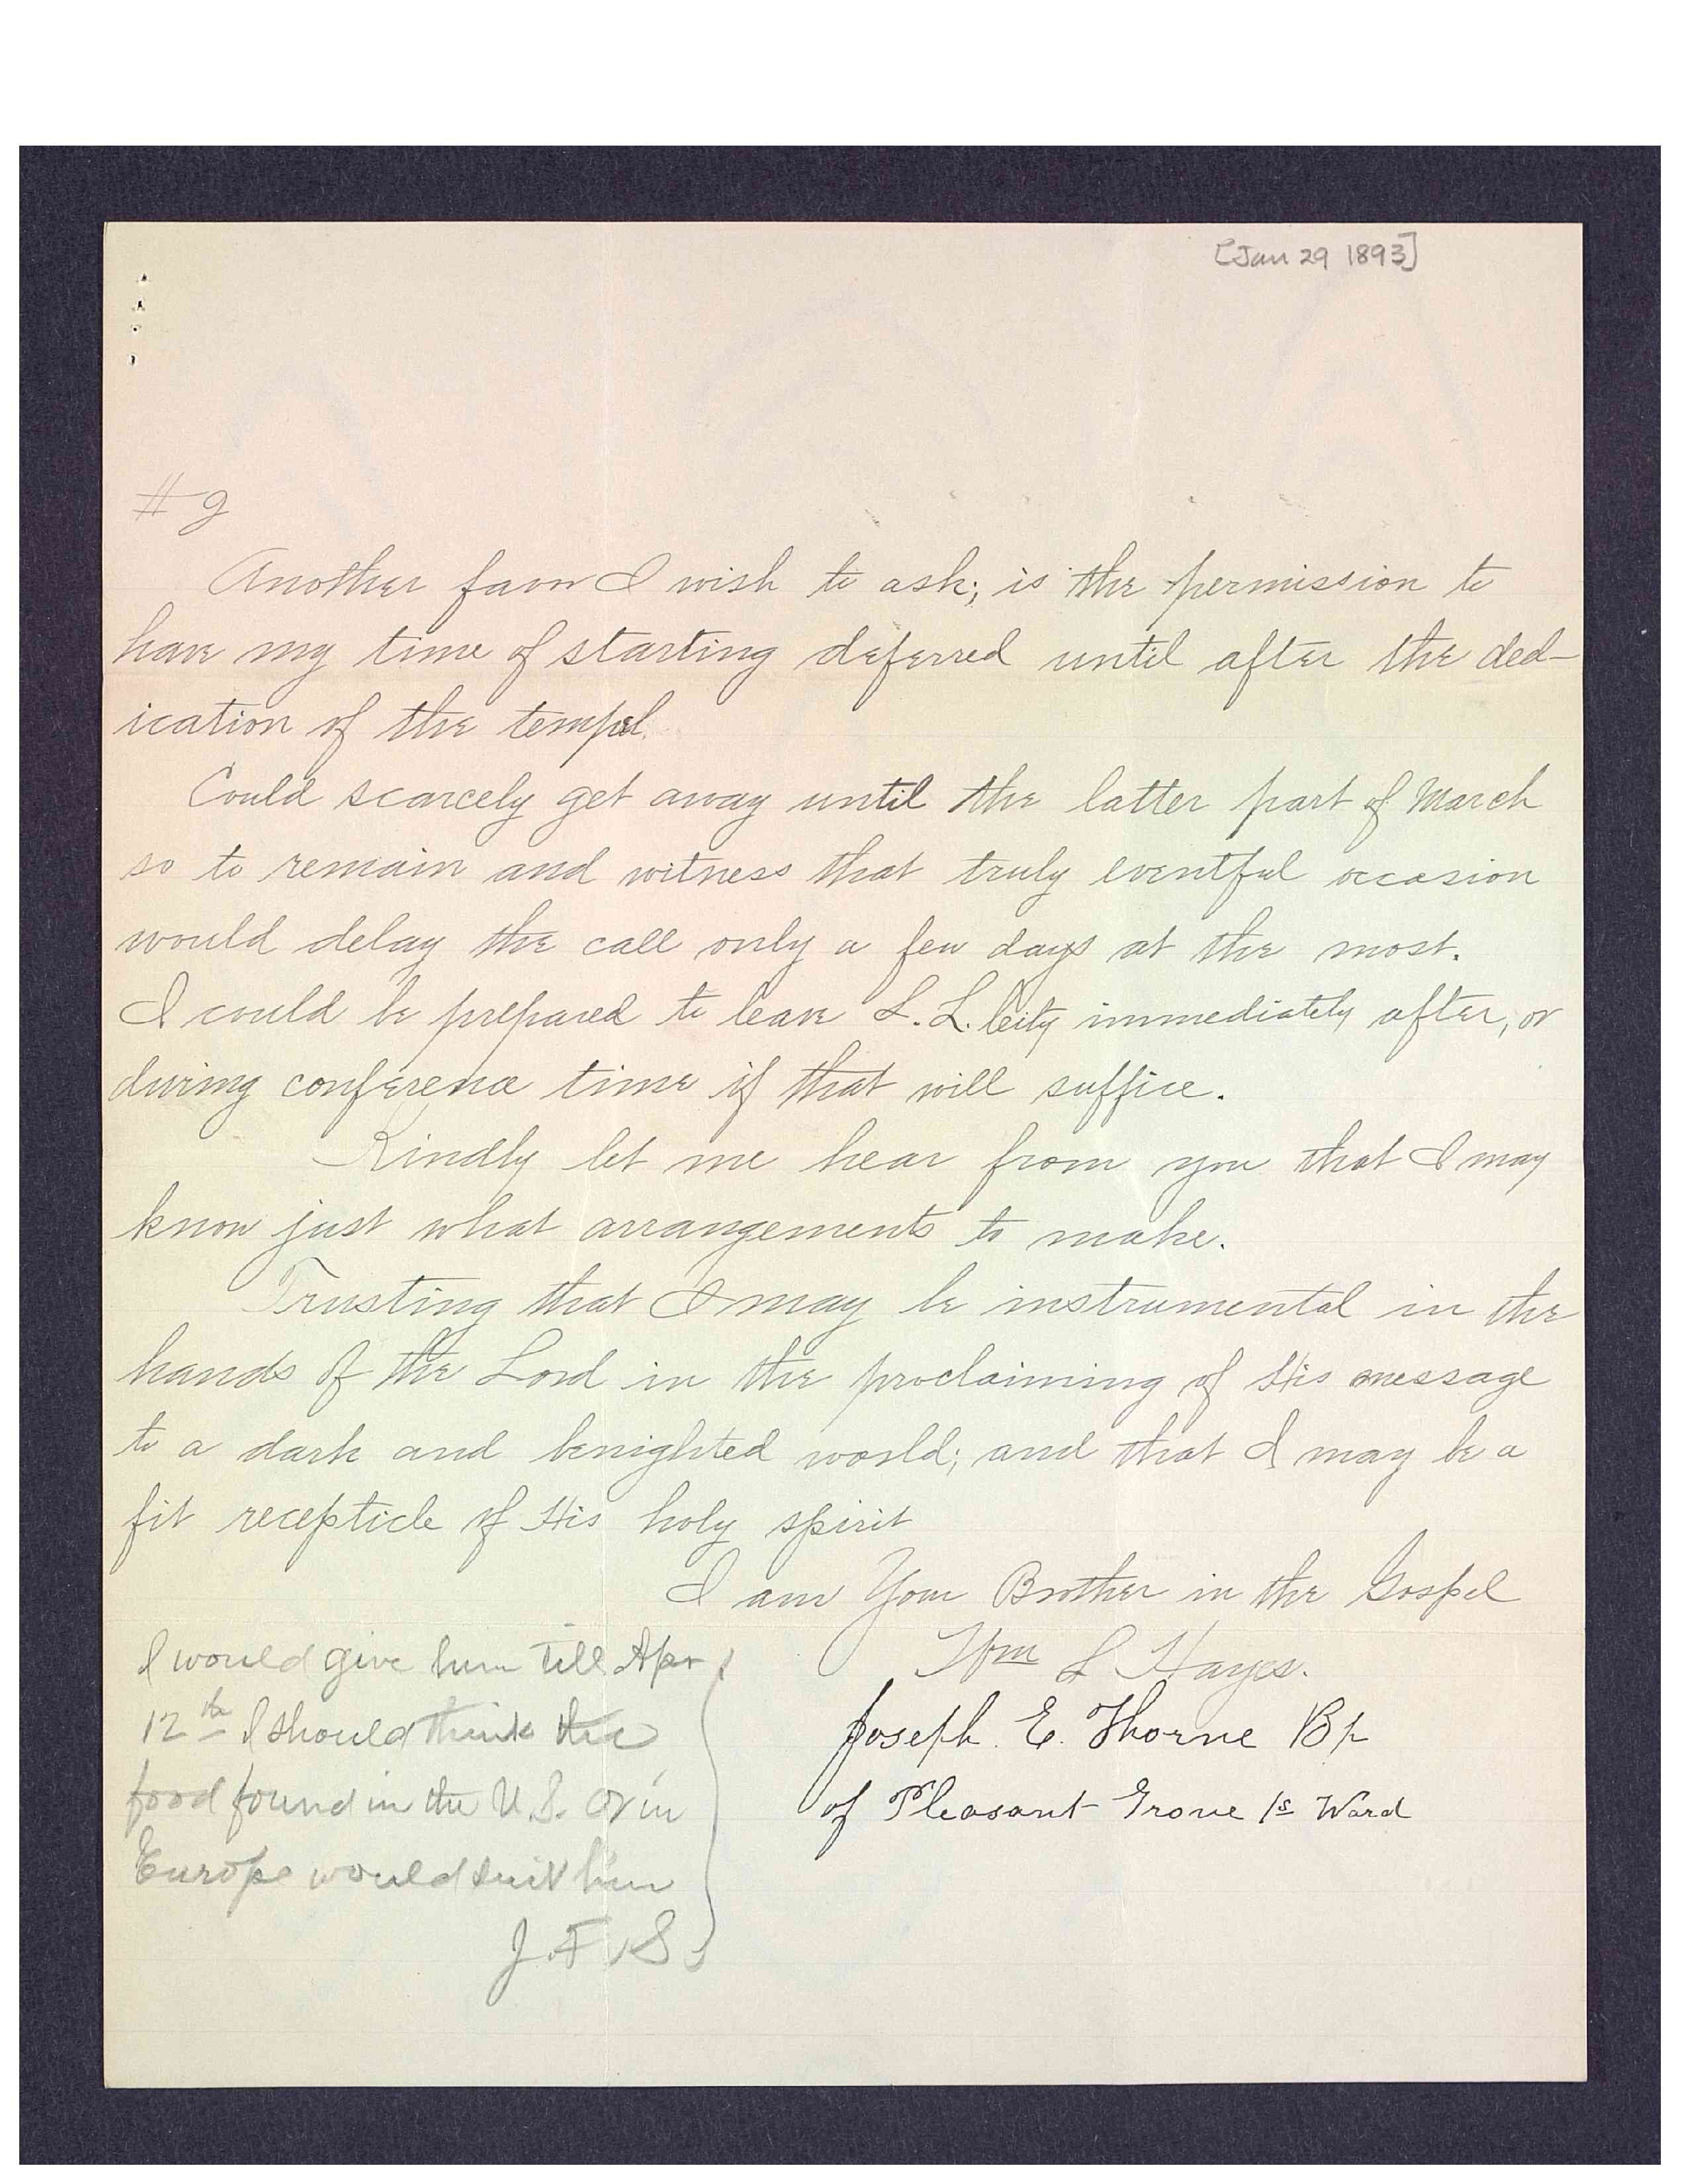 [Jan 29 1893]
# 2
Another favor I wish to ask; is the permission to
have my time of starting deferred until after the ded-
ication of the tempel.
Could scarcely get away until the latter part of March
so to remain and witness that truly eventful occasion
would delay the call only a few days at the most.
I could be prepared to leave S. L. City immediately after, or
during conference time if that will suffice.
Kindly let me hear from you that I may
know just what arrangements to make.
Trusting that I may be instrumental in the
hands of the Lord in the proclaiming of His message
to a dark and benighted world; and that I may be a
fit recepticle of His holy spirit
I am Your Brother in the Gospel
Wm L Hayes.
Joseph. E. Thorne Bp
of Pleasant Grove 1s Ward
I would give him till Apr
12th I should think the
food found in the U.S. or in
Europe would suit him
J.F.S.